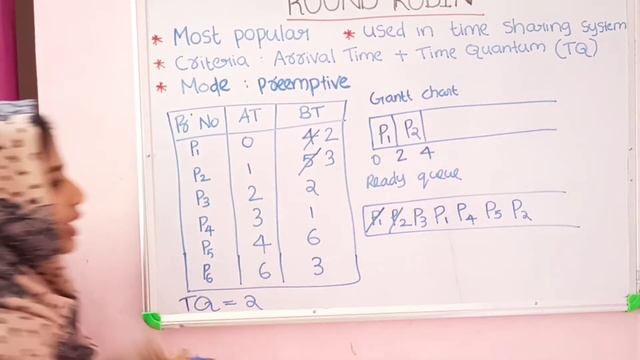 ROUND ROBIN
* Most popular * used in time sharing system
* Criteria : Arrival Time + Time Quantum (TQ)
* Mode : Preemptive
Pr No AT BT
P1 0 4 2
P2 1 5 3
P3 2 2
P4 3 1
P5 4 6
P6 6 3
TQ = 2
Gantt chart
P1 P2
0 2 4
Ready queue
P1 P2 P3 P1 P4 P5 P2